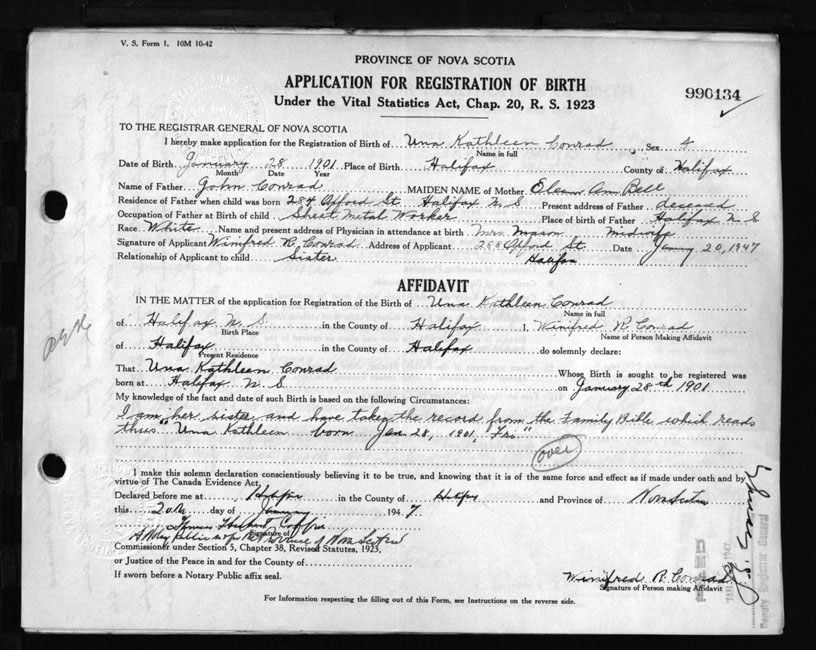 V. S. Form 1. 10M 10-42
PROVINCE OF NOVA SCOTIA
APPLICATION FOR REGISTRATION OF BIRTH
Under the Vital Statistics Act, Chap. 20, R. S. 1923
990134
TO THE REGISTRAR GENERAL OF NOVA SCOTIA
I hereby make application for the Registration of Birth of Una Kathleen Conrad Sex f
Name in full
Date of Birth January 28 1901 Place of Birth Halifax County of Halifax
Month Date Year
Name of Father John Conrad MAIDEN NAME of Mother Ann Bell
Residence of Father when child was born 284 Oxford St Halifax N. S Present address of Father deceased
Occupation of Father at Birth of child Sheet Metal Worker Place of birth of Father Halifax N S
Race White Name and present address of Physician in attendance at birth Mrs Mason Midwife
Signature of Applicant Winifred R. Conrad Address of Applicant Oxford St. Date 20, 1947
Relationship of Applicant to child Sister Halifax
AFFIDAVIT
IN THE MATTER of the application for Registration of the Birth of Una Kathleen Conrad
Name in full
of Halifax N. S in the County of Halifax I, Winifred R. Conrad
Birth Place Name of Person Making Affidavit
of Halifax in the County of Halifax do solemnly declare:
Present Residence
That Una Kathleen Conrad Whose Birth is sought to be registered was
born at Halifax N. S on January 28th 1901
My knowledge of the fact and date of such Birth is based on the following Circumstances:
I am her sister and have taken the record from the Family Bible which reads
thus "Una Kathleen born Jan 28, 1901, "Fri"
over
I make this solemn declaration conscientiously believing it to be true, and knowing that it is of the same force and effect as if made under oath and by
virtue of The Canada Evidence Act,
Declared before me at Halifax in the County of Halifax and Province of Nova Scotia
this 20th day of January 1947.
Signature of
A Notary Public in & for the Province of Nova Scotia
Commissioner under Section 5, Chapter 38, Revised Statutes, 1923,
or Justice of the Peace in and for the County of
If sworn before a Notary Public affix seal.
Winifred R. Conrad
Signature of Person making Affidavit
For Information respecting the filling out of this Form, see Instructions on the reverse side.
Deputy Registrar General